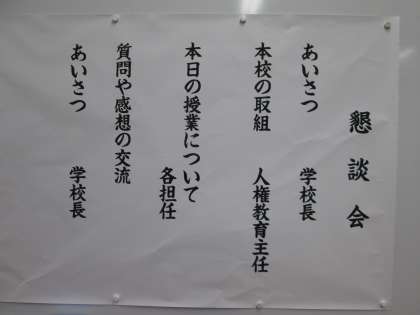 懇談会
あいさつ　学校長
本校の取組　人権教育主任
本日の授業について　各担任
質問や感想の交流
あいさつ　学校長